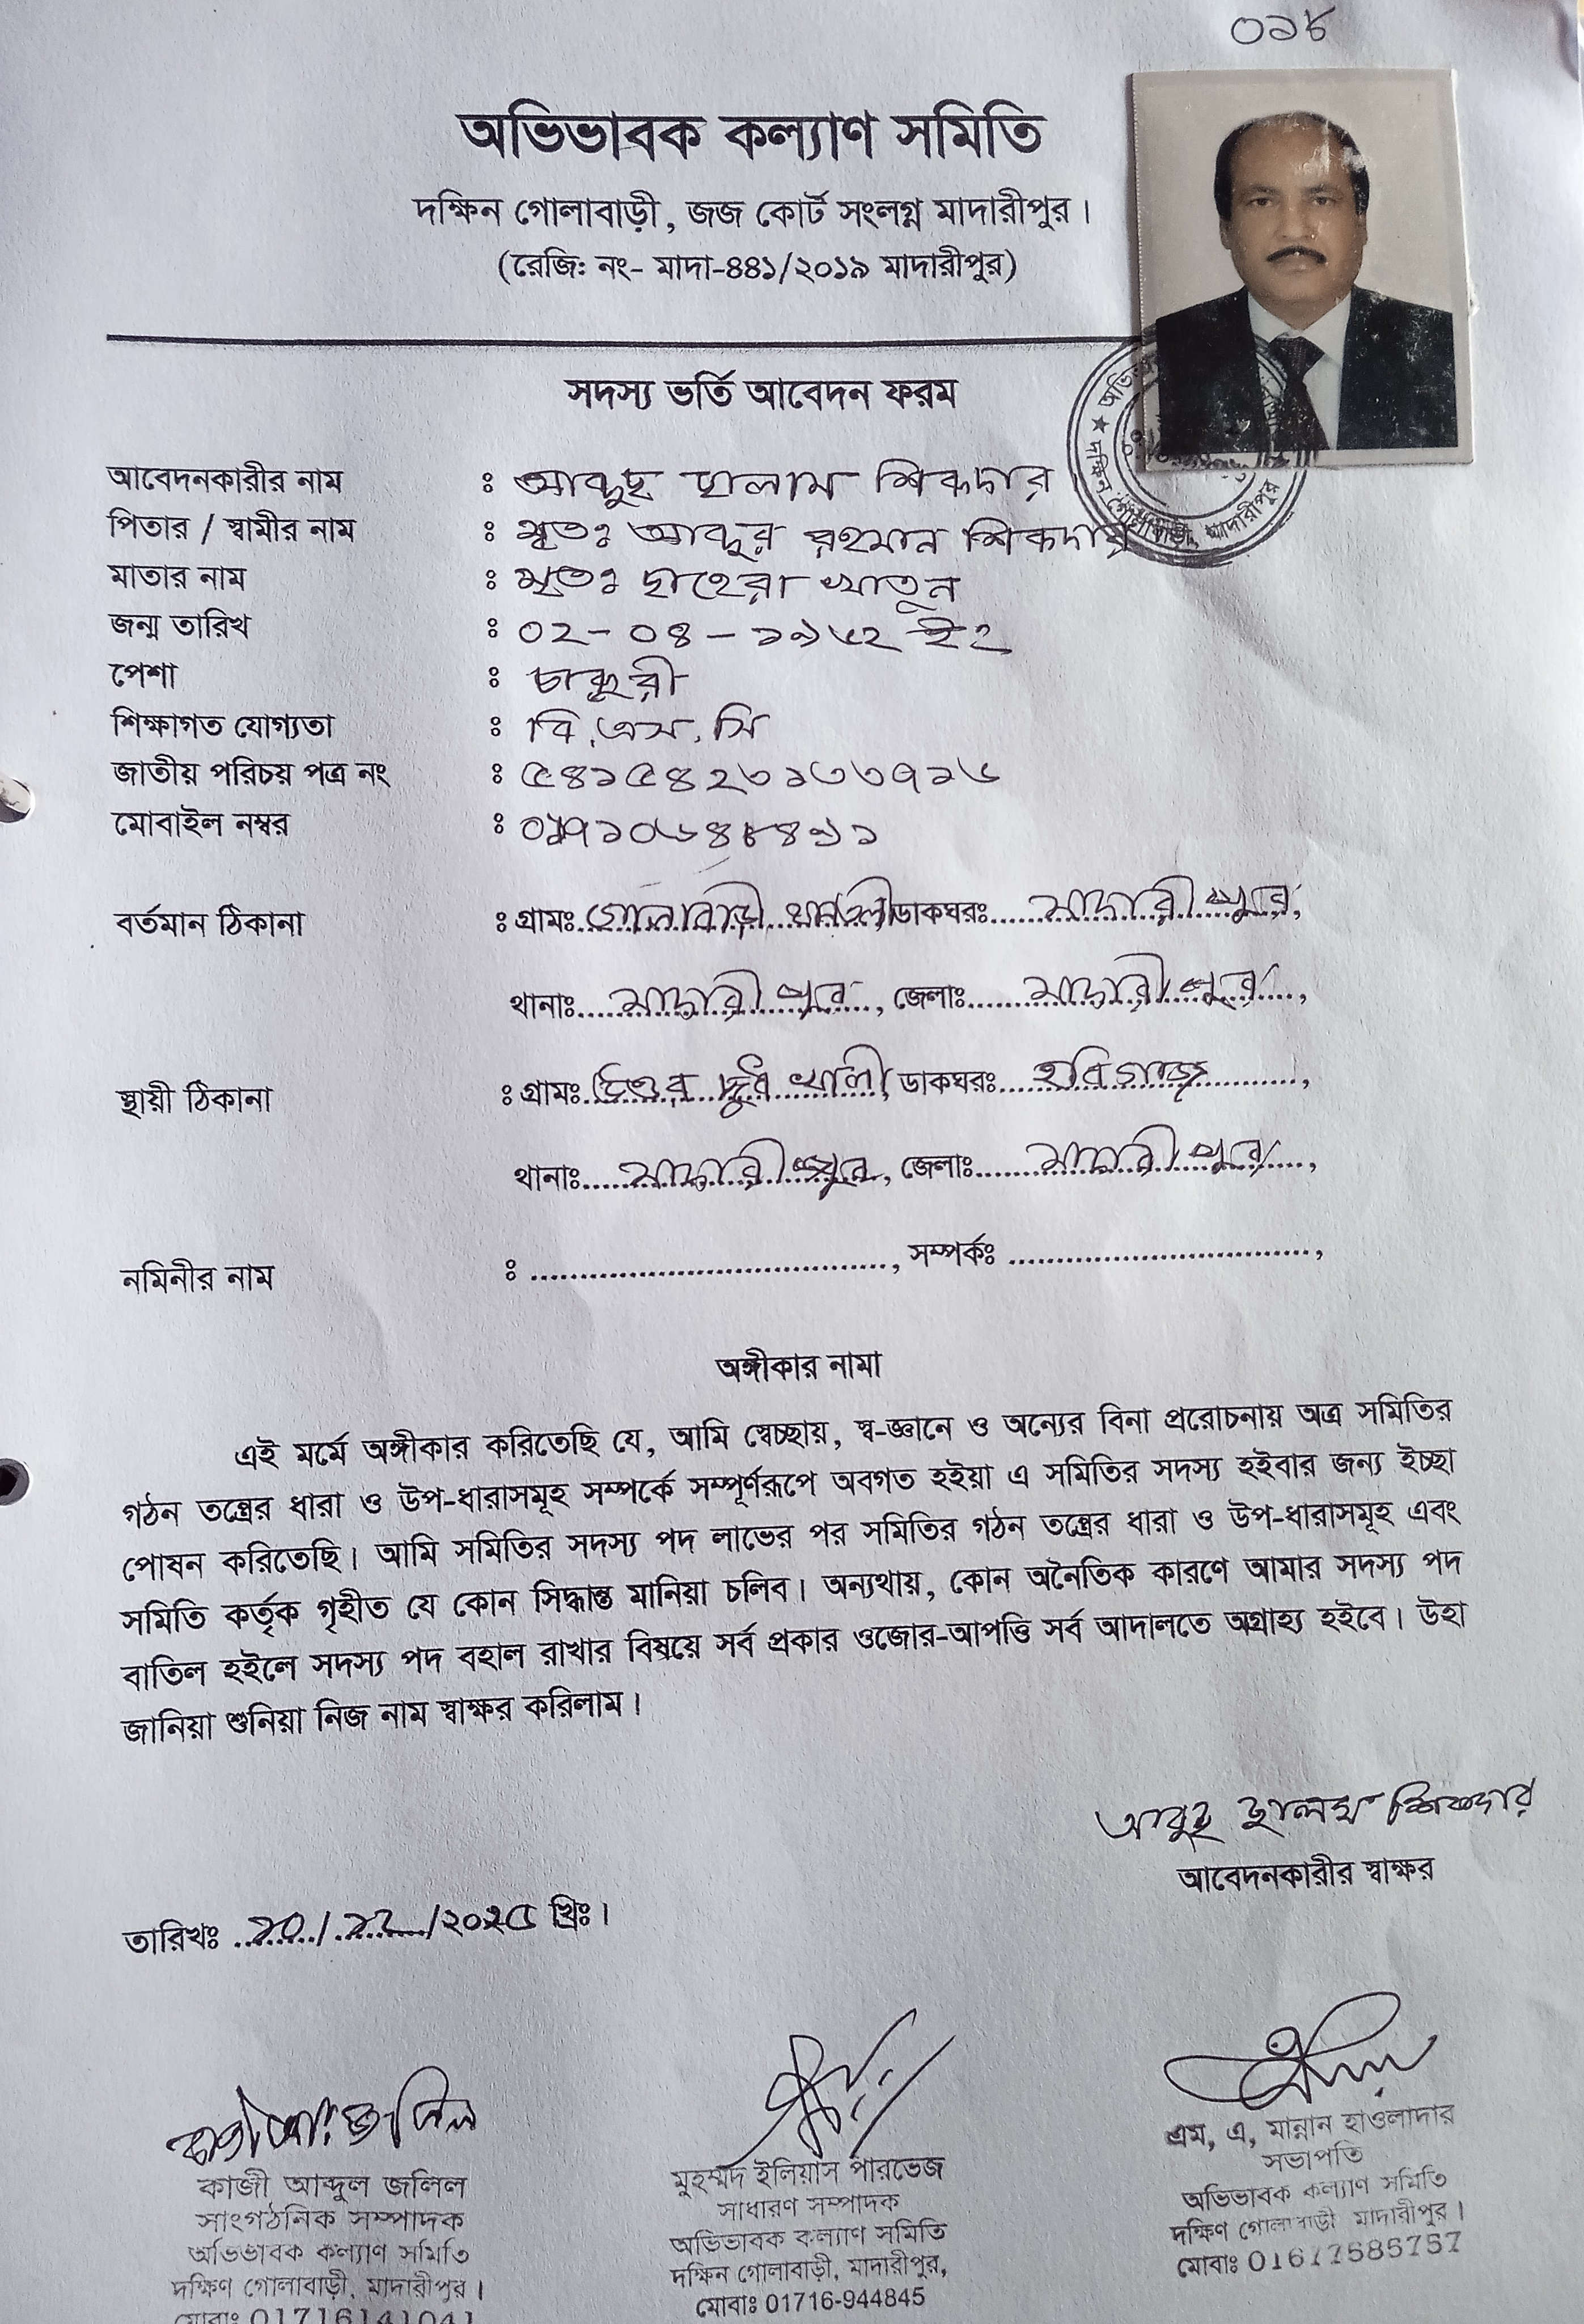 ০১৮
অভিভাবক কল্যাণ সমিতি
দক্ষিন গোলাবাড়ী, জজ কোর্ট সংলগ্ন মাদারীপুর।
(রেজি: নং- মাদা-৪৪১/২০১৯ মাদারীপুর)
সদস্য ভর্তি আবেদন ফরম
আবেদনকারীর নাম : আব্দুছ ছালাম শিকদার
পিতার / স্বামীর নাম : মৃতঃ আব্দুর রহমান শিকদার
মাতার নাম : মৃতঃ ছাহেরা খাতুন
জন্ম তারিখ : ০২-০৪-১৯৬২ ইং
পেশা : চাকুরী
শিক্ষাগত যোগ্যতা : বি.এস.সি
জাতীয় পরিচয় পত্র নং : ৫৪১৫৪২৩১৩৩৭১৬
মোবাইল নম্বর : ০১৭১০৬৪৮৪৯১
দক্ষিন গোলাবাড়ী, মাদারীপুর
বর্তমান ঠিকানা : গ্রামঃ গোলাবাড়ী ডাকঘরঃ মাদারীপুর,
থানাঃ মাদারীপুর, জেলাঃ মাদারীপুর,
স্থায়ী ঠিকানা : গ্রামঃ উত্তর দুধখালী, ডাকঘরঃ হবিগঞ্জ,
থানাঃ মাদারীপুর, জেলাঃ মাদারীপুর,
নমিনীর নাম : ...................................., সম্পর্কঃ ................................,
অঙ্গীকার নামা
এই মর্মে অঙ্গীকার করিতেছি যে, আমি স্বেচ্ছায়, স্ব-জ্ঞানে ও অন্যের বিনা প্ররোচনায় অত্র সমিতির
গঠন তন্ত্রের ধারা ও উপ-ধারাসমূহ সম্পর্কে সম্পূর্ণরূপে অবগত হইয়া এ সমিতির সদস্য হইবার জন্য ইচ্ছা
পোষন করিতেছি। আমি সমিতির সদস্য পদ লাভের পর সমিতির গঠন তন্ত্রের ধারা ও উপ-ধারাসমূহ এবং
সমিতি কর্তৃক গৃহীত যে কোন সিদ্ধান্ত মানিয়া চলিব। অন্যথায়, কোন অনৈতিক কারণে আমার সদস্য পদ
বাতিল হইলে সদস্য পদ বহাল রাখার বিষয়ে সর্ব প্রকার ওজোর-আপত্তি সর্ব আদালতে অগ্রাহ্য হইবে। উহা
জানিয়া শুনিয়া নিজ নাম স্বাক্ষর করিলাম।
আব্দুছ ছালাম শিকদার
আবেদনকারীর স্বাক্ষর
তারিখঃ ১০/১২/২০২৫ খ্রিঃ।
কাজী আব্দুল জলিল
সাংগঠনিক সম্পাদক
অভিভাবক কল্যাণ সমিতি
দক্ষিণ গোলাবাড়ী, মাদারীপুর।
মোবাঃ 01716141041
মুহম্মদ ইলিয়াস পারভেজ
সাধারণ সম্পাদক
অভিভাবক কল্যাণ সমিতি
দক্ষিন গোলাবাড়ী, মাদারীপুর,
মোবাঃ 01716-944845
এম, এ, মান্নান হাওলাদার
সভাপতি
অভিভাবক কল্যাণ সমিতি
দক্ষিণ গোলাবাড়ী মাদারীপুর।
মোবাঃ 01677585757